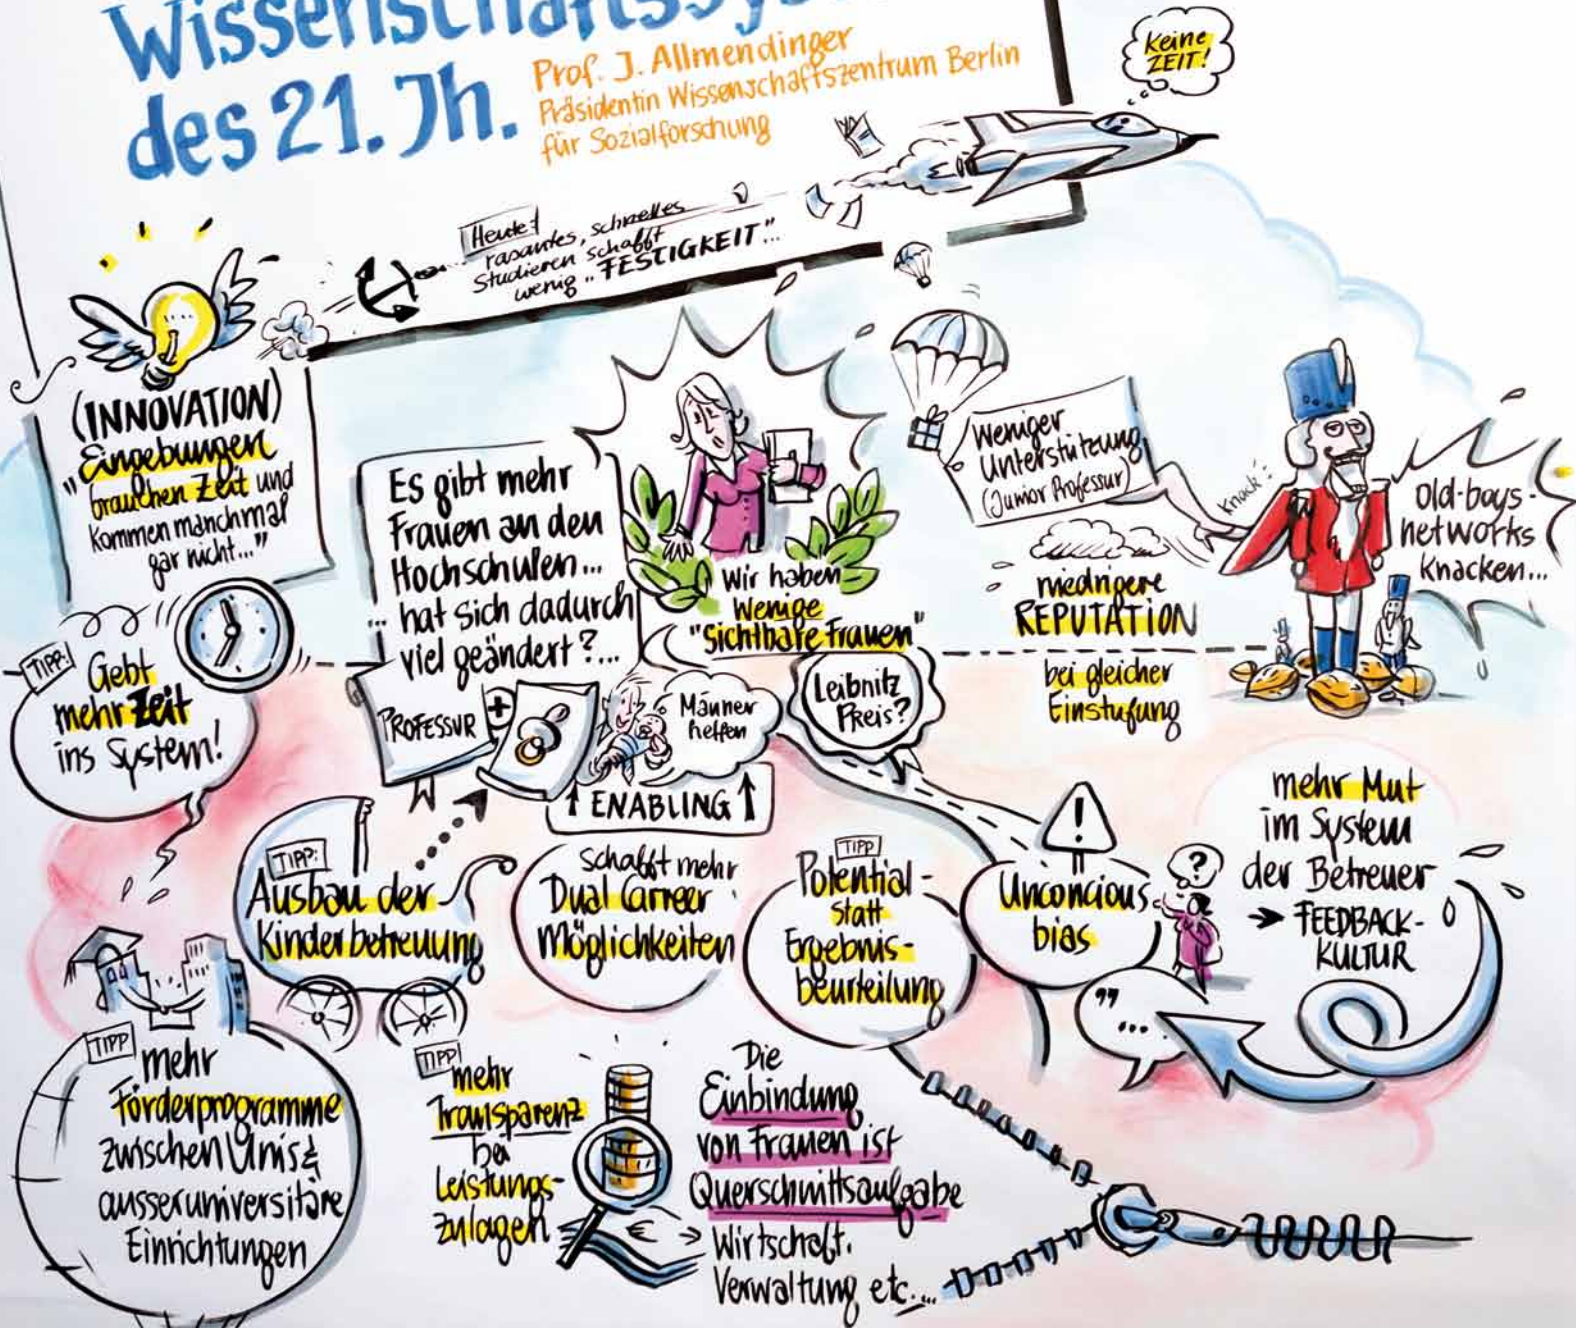 Wissenschaftssys
des 21. Jh.
Prof. J. Allmendinger
Präsidentin Wissenschaftszentrum Berlin
für Sozialforschung
keine
ZEIT!
Heute!
rasantes, schnelles
Studieren schafft
wenig „FESTIGKEIT"...
(INNOVATION)
"Eingebungen
brauchen Zeit und
kommen manchmal
gar nicht..."
TIPP:
Gebt
mehr Zeit
ins System!
Es gibt mehr
Frauen an den
Hochschulen...
... hat sich dadurch
viel geändert?...
Wir haben
Wenige
"Sichtbare Frauen"
Weniger
Unterstützung
(Junior Professur)
knack!
old-boys-
networks
knacken...
niedrigere
REPUTATION
bei gleicher
Einstufung
PROFESSUR
+
Männer
helfen
Leibnitz
Preis?
ENABLING
TIPP:
Ausbau der
Kinderbetreuung
schafft mehr
Dual Carreer
Möglichkeiten
TIPP
Potential-
statt
Ergebnis-
beurteilung
!
Unconcious
bias
?
mehr Mut
im System
der Betreuer
→ FEEDBACK-
KULTUR
"...
TIPP
mehr
Förderprogramme
zwischen Unis &
ausseruniversitäre
Einrichtungen
TIPP
mehr
Transparenz
bei
Leistungs-
zulagen
Die
Einbindung
von Frauen ist
Querschnittsaufgabe
Wirtschaft.
Verwaltung etc....